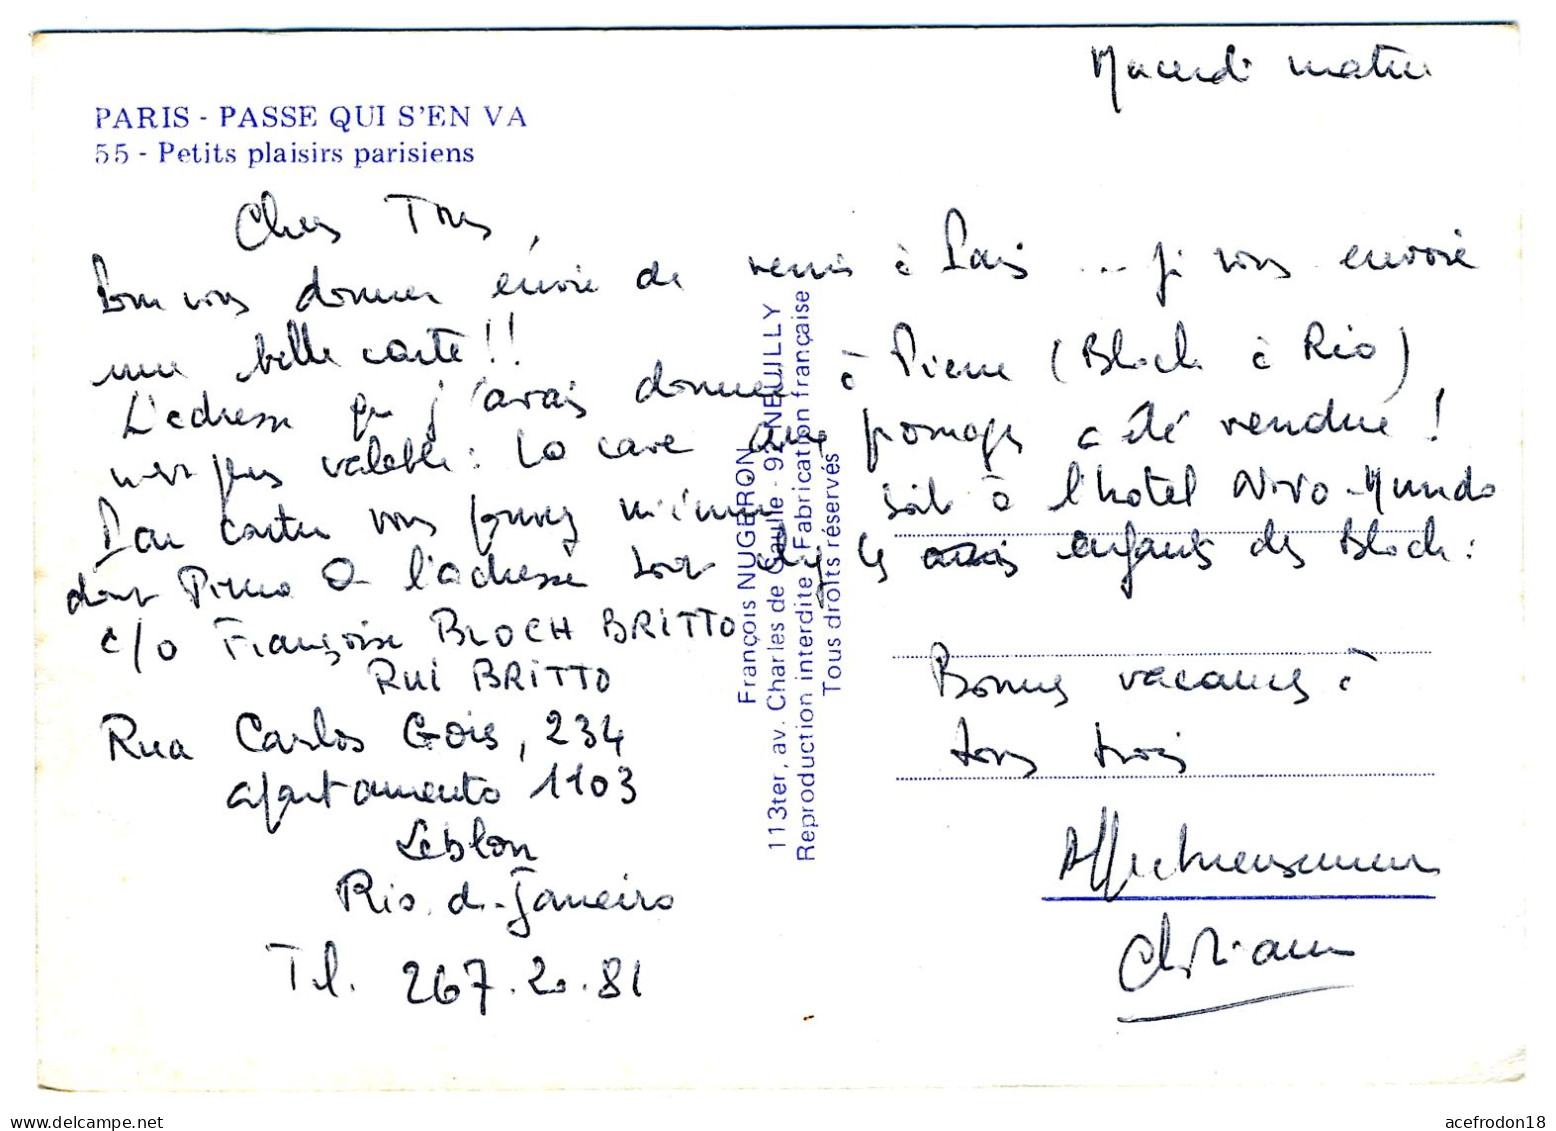 Mercredi matin
PARIS - PASSE QUI S'EN VA
55 - Petits plaisirs parisiens
Chers Tous,
Pour vous donner envie de venir à Paris ... je vous envoie
une belle carte !!
L'adresse que j'avais donnée à Pierre (Bloch à Rio)
n'est plus valable : La cave aux fromages a été vendue !
Par contre vous pouvez m'écrire soit à l'hotel Novo-Mundo
dont Pierre a l'adresse soit chez les enfants des Bloch :
c/o Françoise BLOCH BRITTO
RUI BRITTO
Rua Carlos Gois, 234
apartamento 1103
Leblon
Rio de Janeiro
Tel. 267.20.81
Bonnes vacances à
tous trois
Affectueusement
François NUGERON
113ter, av. Charles de Gaulle - 92 NEUILLY
Reproduction interdite Fabrication française
Tous droits réservés
acefrodon18